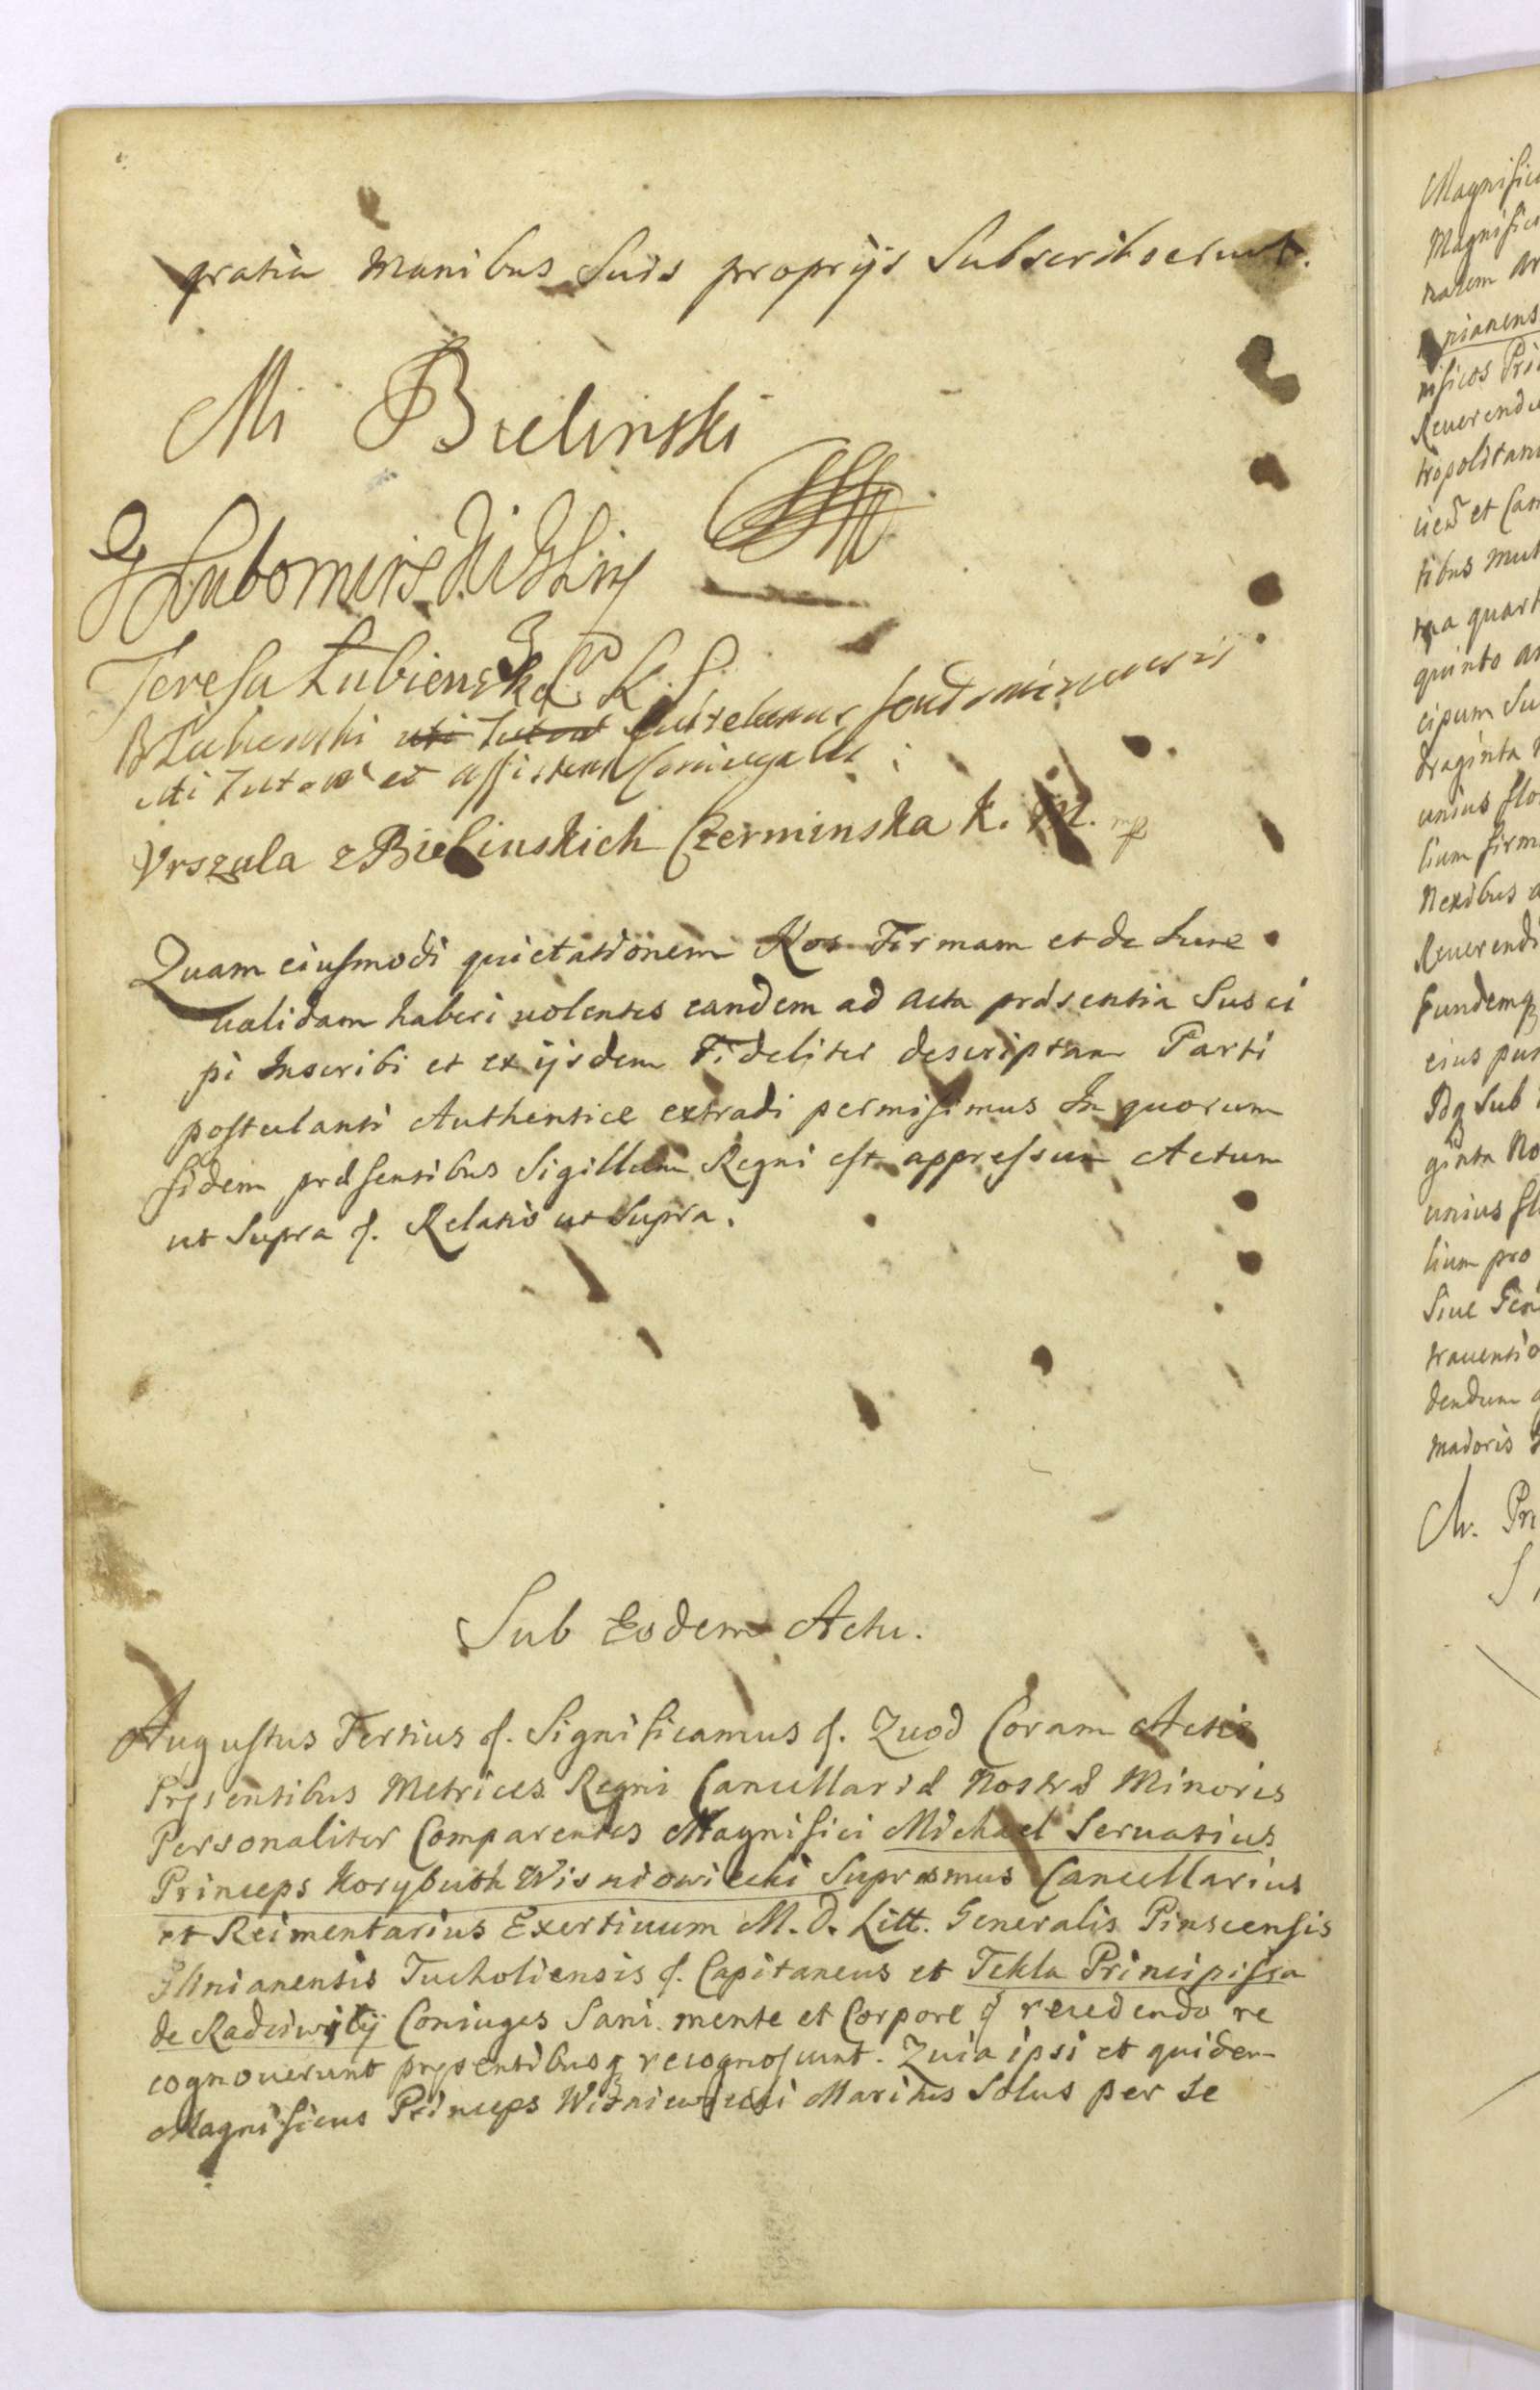 gratia manibus Suis proprijs Subscribserunt.
Mi Bielinski
Lubomirski
Teresa Łubienska K. S.
BŁubienski uti Tutor Sendomiriensis
uti Tutor et assistens Coniugalis
Vrszula z Bielinskich Czerminska K. M. mp
Quam eiusmodi quietationem Nos Firmam et de Iure
ualidam haberi uolentes eandem ad Acta præsentia Susci
pi Inscribi et ex ijsdem Fideliter descriptam Parti
postulanti Authentice extradi permisimus In quorum
fidem præsentibus Sigillum Regni est appressum Actum
ut Supra &. Relatio ut Supra.
Sub Eodem Actu.
Augustus Tertius &. Significamus &. Quod Coram Actis
Præsentibus Metrices Regni Cancellariæ Nostræ Minoris
Personaliter Comparentes Magnifici Michael Seruatius
Princeps Korybuth Wisniowiecki Supremus Cancellarius
et Reimentarius Exertiuum M. D. Litt. Generalis Pinscensis
Glinianensis Tucholiensis &. Capitaneus et Tekla Principissa
de Radziwiły Coniuges Sani mente et Corpore & recedendo re
cognouerunt præsentibusq recognoscunt. Quia ipsi et quidem
Magnificus Princeps Wiżniewiecki Maritus Solus per se
Magnific
Magnific
pianens
nificos Pri
Reuerend
tropolitan
et Can
tibus mut
quart
quinto
cipum Su
draginta
unius flo
lium firm
Nexibus
Reuerendi
Eundemq
eius
Sub
ginta No
unius fl
lium pro
Siue
trauentio
dendum
madoris
M. Pr